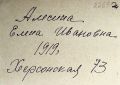 Алесина
Елена Ивановна
1919г.
Херсонская 73